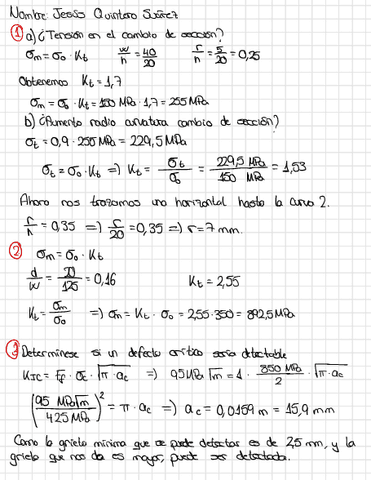 Nombre: Jesús Quintero Suárez
① a) ¿Tensión en el cambio de sección?
σm = σo · Kt   w/h = 40/20   r/h = 5/20 = 0,25
Obtenemos Kt = 1,7
σm = σo · Kt = 150 MPa · 1,7 = 255 MPa
b) ¿Aumento radio curvatura cambio de sección?
σt = 0,9 · 255 MPa = 229,5 MPa
σt = σo · Kt => Kt = σt/σo = 229,5 MPa/150 MPa = 1,53
Ahora nos trazamos una horizontal hasta la curva 2.
r/h = 0,35 => r/20 = 0,35 => r = 7 mm.
② σm = σo · Kt
d/w = 20/125 = 0,16   Kt = 2,55
Kt = σm/σo => σm = Kt · σo = 2,55 · 350 = 892,5 MPa
③ Determínese si un defecto crítico sería detectable
KIC = · σc · √π · ac => 95 MPa √m = 1 · 850 MPa/2 · √π · ac
(95 MPa √m/425 MPa)² = π · ac => ac = 0,0159 m = 15,9 mm
Como la grieta mínima que se puede detectar es de 2,5 mm, y la
grieta que nos da es mayor, puede ser detectada.